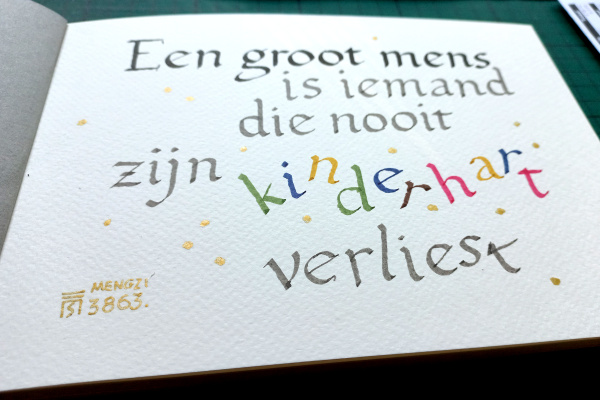 Een groot mens
is iemand
die nooit
zijn kinderhart
verliest
MENGZI
3863.